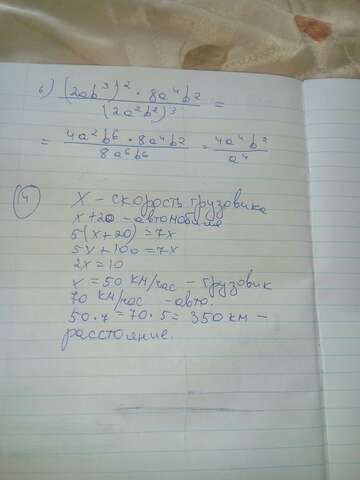 б) (2ab³)² · 8a⁴b² / (2a²b²)³ =
= 4a²b⁶ · 8a⁴b² / 8a⁶b⁶ = 4a⁴b² / a⁴
4 x - скорость грузовика
x+20 - автомобиля
5(x+20) = 7x
5x+100 = 7x
2x = 10
x = 50 км/час - грузовик
70 км/час - авто.
50·7 = 70·5 = 350 км -
расстояние.